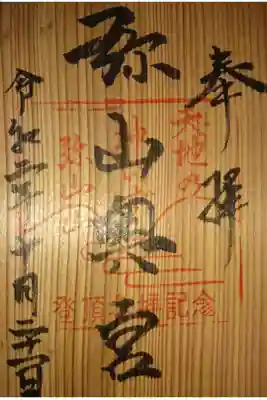 奉拝
弥山奥宮
令和二年十月二十一日
天地の
弥山
登頂参拝記念